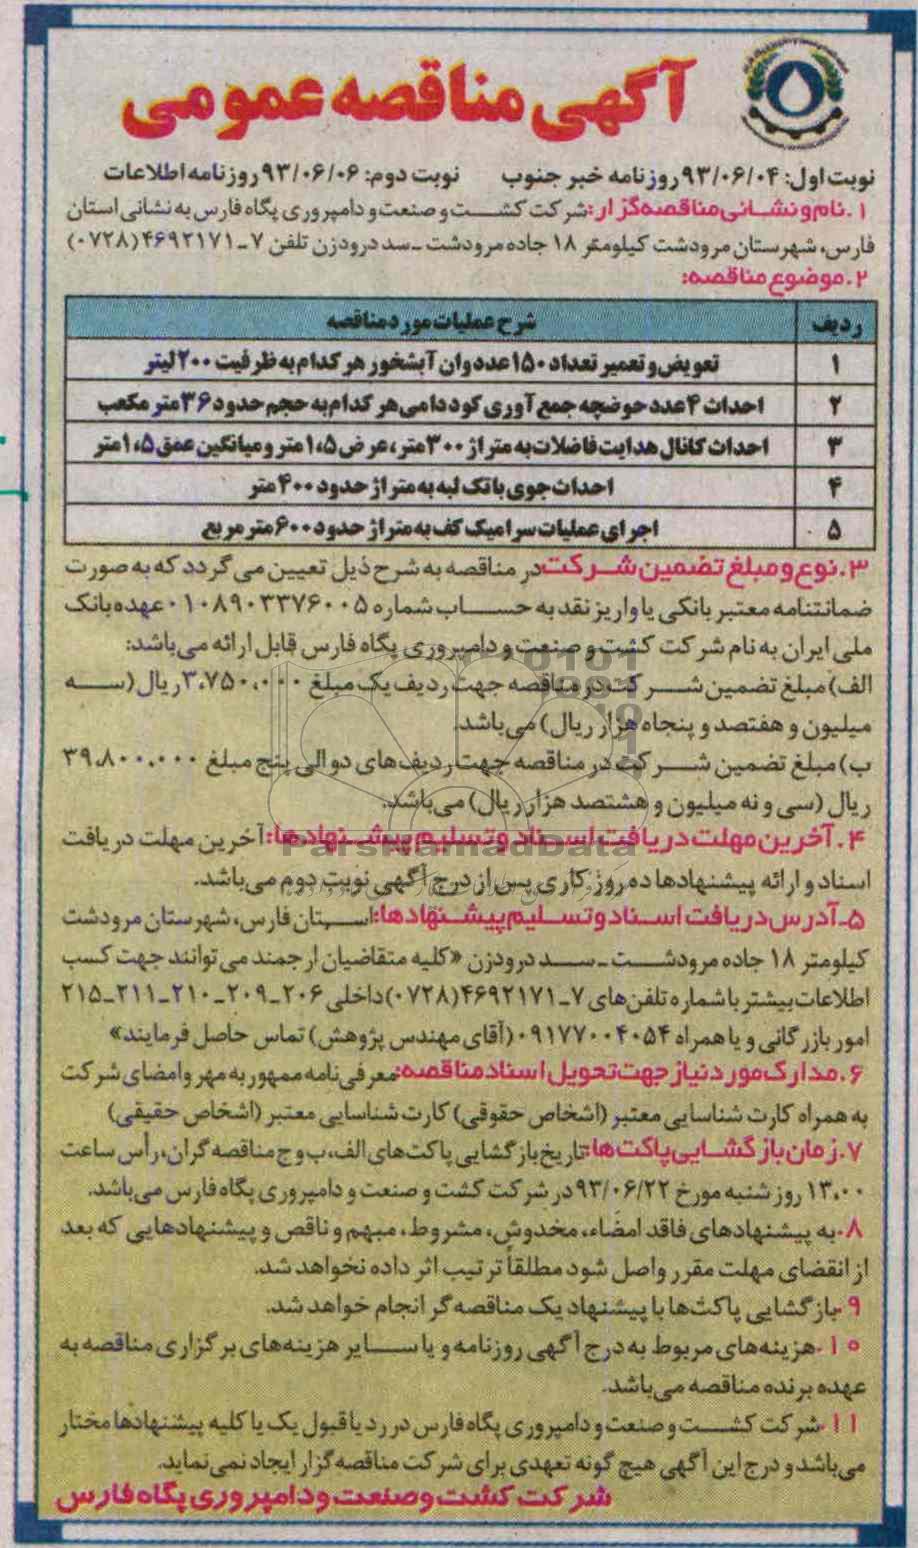 آگهی مناقصه عمومی
نوبت اول: ۹۳/۰۶/۰۴ روزنامه خبر جنوب نوبت دوم: ۹۳/۰۶/۰۶ روزنامه اطلاعات
۱. نام و نشانی مناقصه‌گزار: شرکت کشت و صنعت و دامپروری پگاه فارس به نشانی استان
فارس، شهرستان مرودشت کیلومتر ۱۸ جاده مرودشت ـ سد درودزن تلفن ۷ـ۴۶۹۲۱۷۱(۰۷۲۸)
۲. موضوع مناقصه:
ردیف شرح عملیات مورد مناقصه
۱ تعویض و تعمیر تعداد ۱۵۰ عدد وان آبشخور هر کدام به ظرفیت ۲۰۰ لیتر
۲ احداث ۴ عدد حوضچه جمع آوری کود دامی هر کدام به حجم حدود ۳۶ متر مکعب
۳ احداث کانال هدایت فاضلاب به متراژ ۳۰۰ متر، عرض ۱،۵ متر و میانگین عمق ۱،۵ متر
۴ احداث جوی با تک لبه به متراژ حدود ۴۰۰ متر
۵ اجرای عملیات سرامیک کف به متراژ حدود ۶۰۰ متر مربع
۳. نوع و مبلغ تضمین شرکت در مناقصه به شرح ذیل تعیین می گردد که به صورت
ضمانتنامه معتبر بانکی یا واریز نقد به حساب شماره ۰۱۰۸۹۰۳۳۷۶۰۰۵ عهده بانک
ملی ایران به نام شرکت کشت و صنعت و دامپروری پگاه فارس قابل ارائه می باشد:
الف) مبلغ تضمین شرکت در مناقصه جهت ردیف یک مبلغ ۳،۷۵۰،۰۰۰ ریال (سه
میلیون و هفتصد و پنجاه هزار ریال) می باشد.
ب) مبلغ تضمین شرکت در مناقصه جهت ردیف های دو الی پنج مبلغ ۳۹،۸۰۰،۰۰۰
ریال (سی و نه میلیون و هشتصد هزار ریال) می باشد.
۴. آخرین مهلت دریافت اسناد و تسلیم پیشنهادها: آخرین مهلت دریافت
ParsNamadData
اسناد و ارائه پیشنهادها ده روز کاری پس از درج آگهی نوبت دوم می باشد.
۵ـ آدرس دریافت اسناد و تسلیم پیشنهادها: استان فارس، شهرستان مرودشت
کیلومتر ۱۸ جاده مرودشت ـ سد درودزن «کلیه متقاضیان ارجمند می توانند جهت کسب
اطلاعات بیشتر با شماره تلفن های ۷ـ۴۶۹۲۱۷۱(۰۷۲۸) داخلی ۲۰۶ـ۲۰۹ـ۲۱۰ـ۲۱۱ـ۲۱۵
امور بازرگانی و یا همراه ۰۹۱۷۷۰۰۴۰۵۴ (آقای مهندس پژوهش) تماس حاصل فرمایند»
۶. مدارک مورد نیاز جهت تحویل اسناد مناقصه: معرفی نامه ممهور به مهر و امضای شرکت
به همراه کارت شناسایی معتبر (اشخاص حقوقی) کارت شناسایی معتبر (اشخاص حقیقی)
۷. زمان بازگشایی پاکت ها: تاریخ بازگشایی پاکت های الف، ب و ج مناقصه گران، رأس ساعت
۱۳،۰۰ روز شنبه مورخ ۹۳/۰۶/۲۲ در شرکت کشت و صنعت و دامپروری پگاه فارس می باشد.
۸. به پیشنهادهای فاقد امضاء، مخدوش، مشروط، مبهم و ناقص و پیشنهادهایی که بعد
از انقضای مهلت مقرر واصل شود مطلقاً ترتیب اثر داده نخواهد شد.
۹. بازگشایی پاکت ها با پیشنهاد یک مناقصه گر انجام خواهد شد.
۱۰. هزینه های مربوط به درج آگهی روزنامه و یا سایر هزینه های برگزاری مناقصه به
عهده برنده مناقصه می باشد.
۱۱. شرکت کشت و صنعت و دامپروری پگاه فارس در رد یا قبول یک یا کلیه پیشنهادها مختار
می باشد و درج این آگهی هیچ گونه تعهدی برای شرکت مناقصه گزار ایجاد نمی نماید.
شرکت کشت و صنعت و دامپروری پگاه فارس